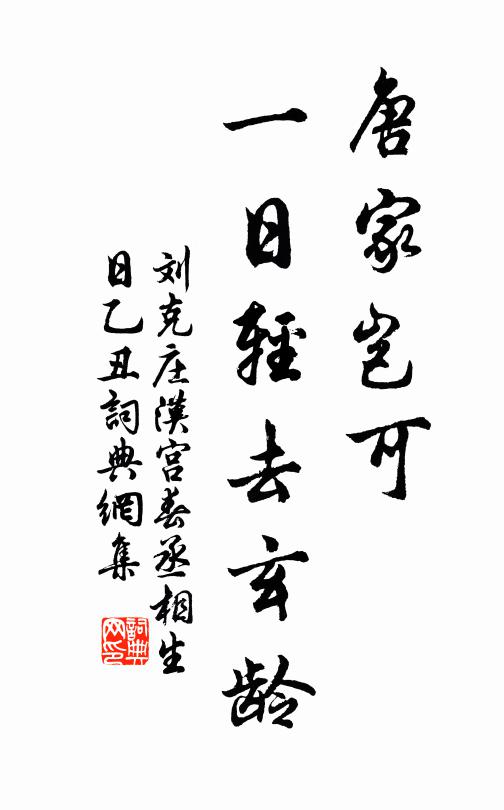 唐家岂可
一日輕去玄龄
刘克庄漢宫春丞相生
日乙丑詞典網集
詞典
网印